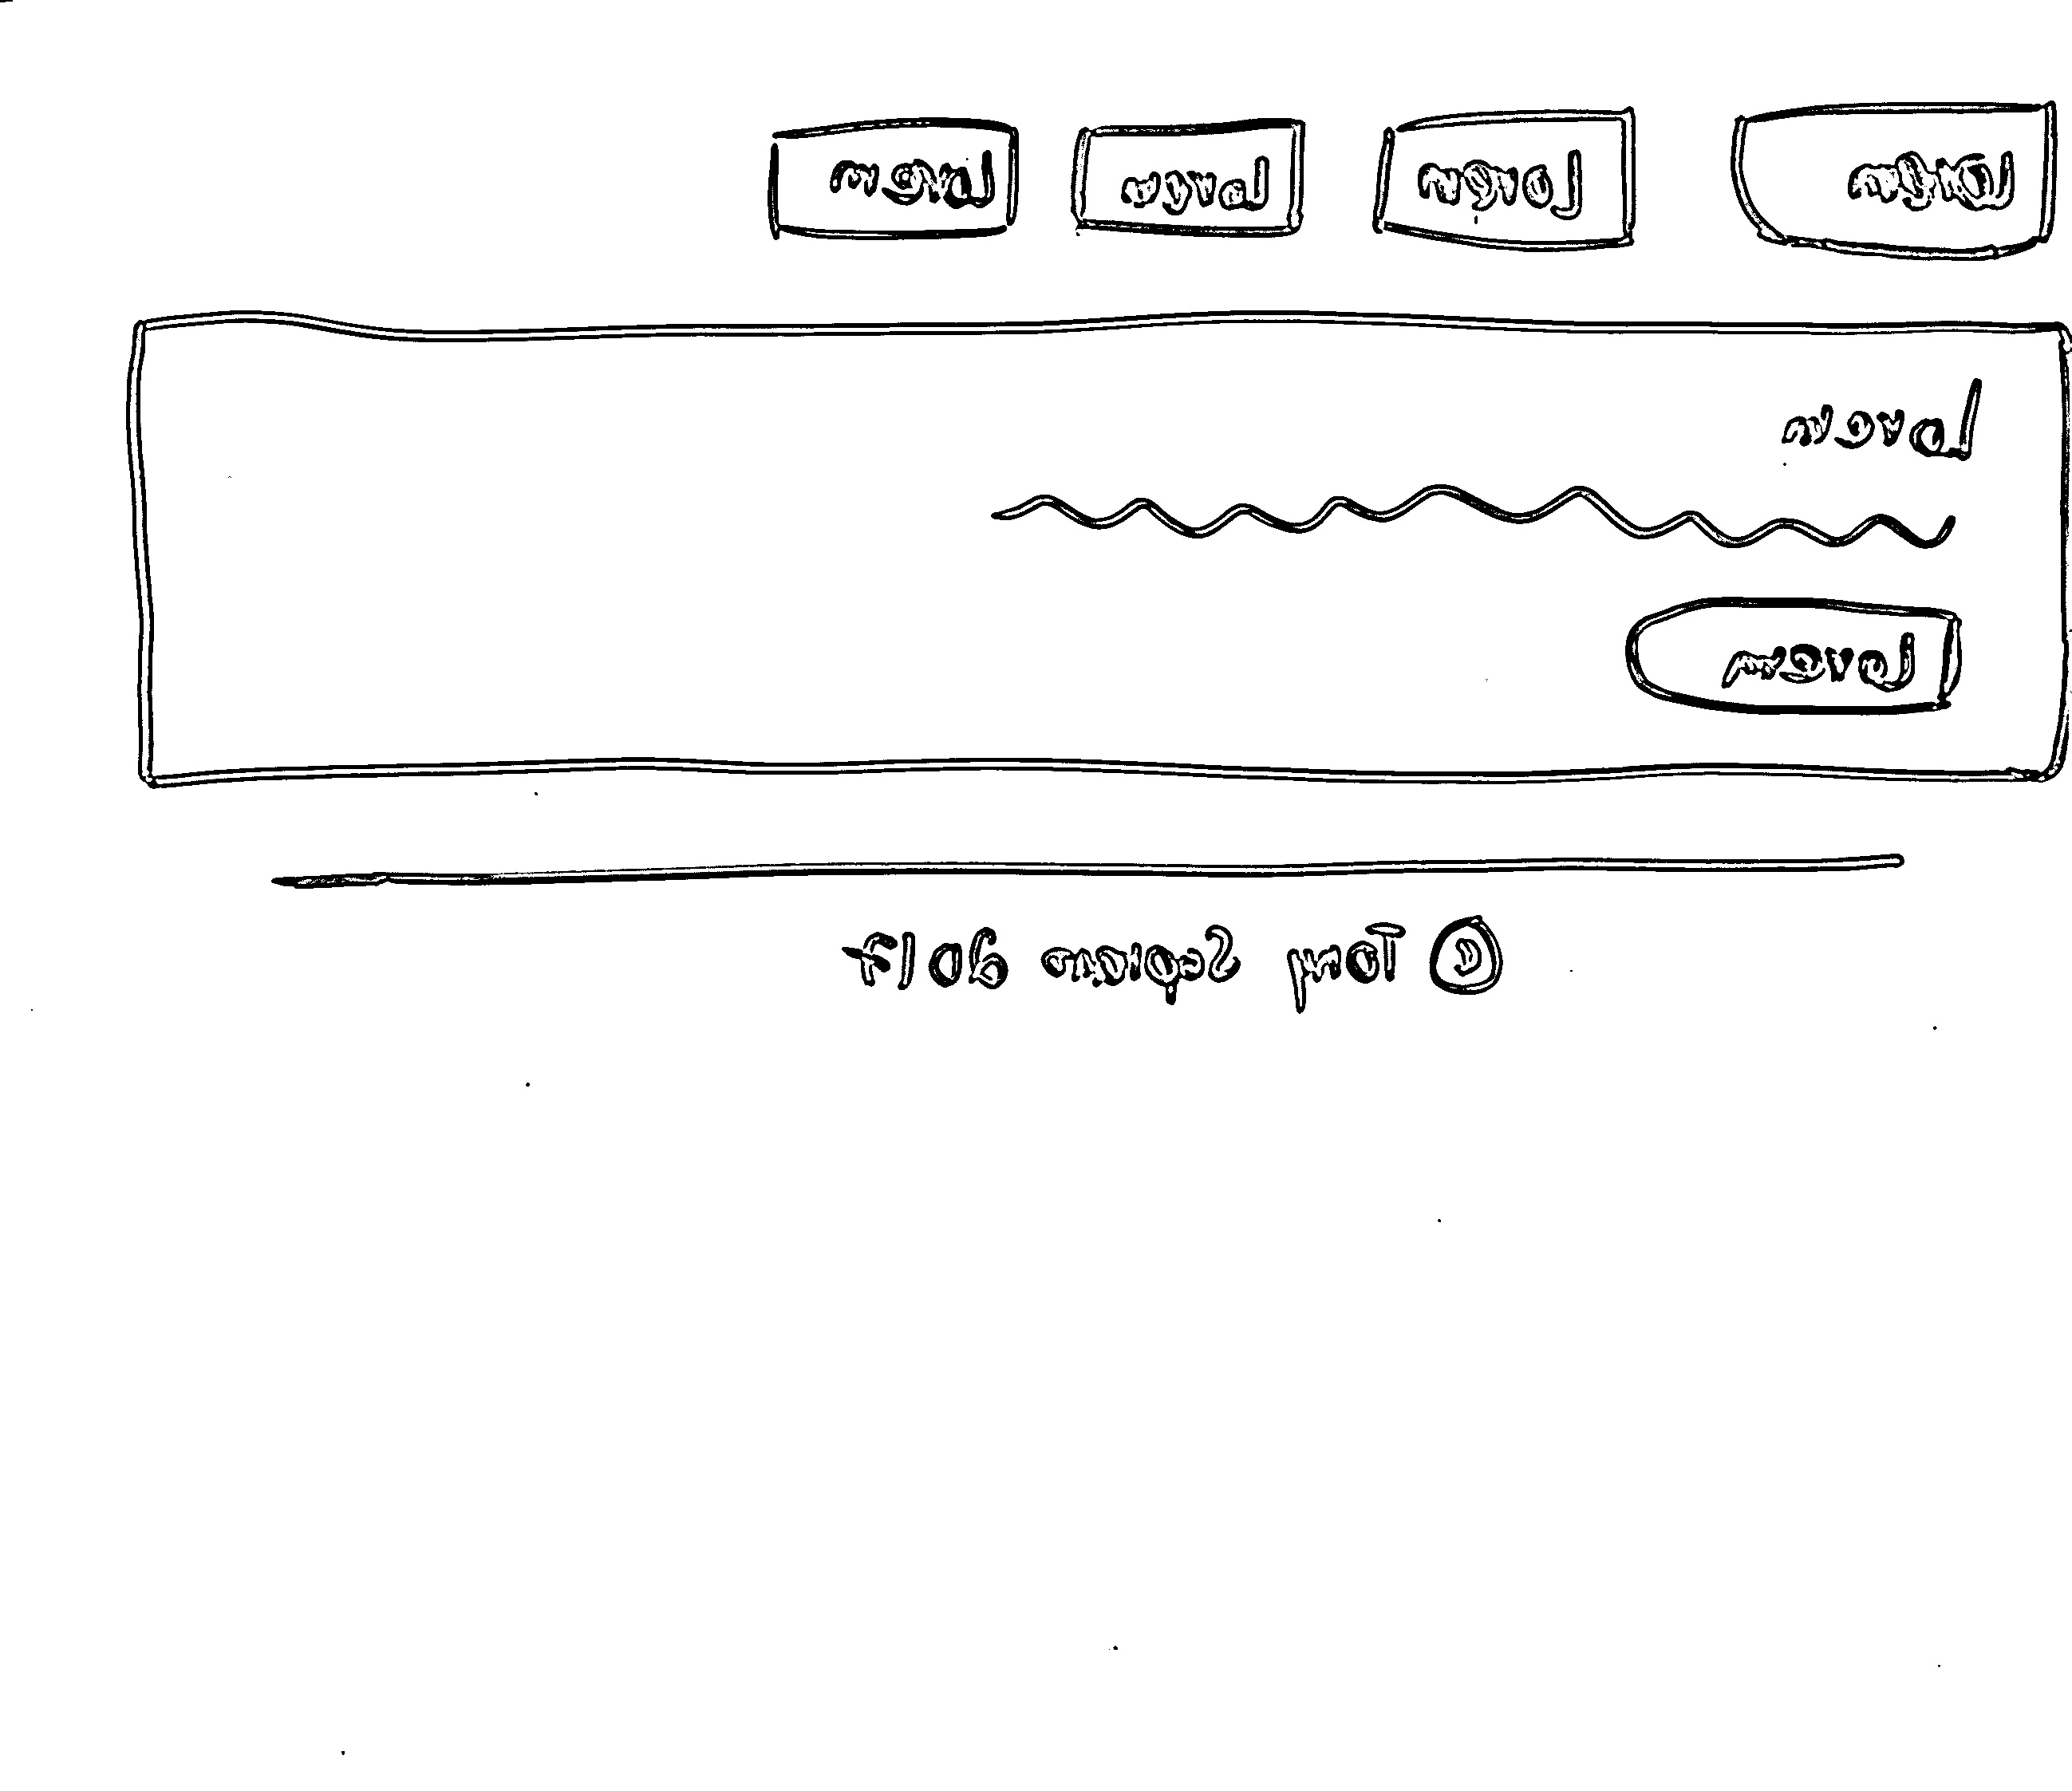 Lorem Lorem Lorem Lorem
Lorem
Lorem
© Tony
2017